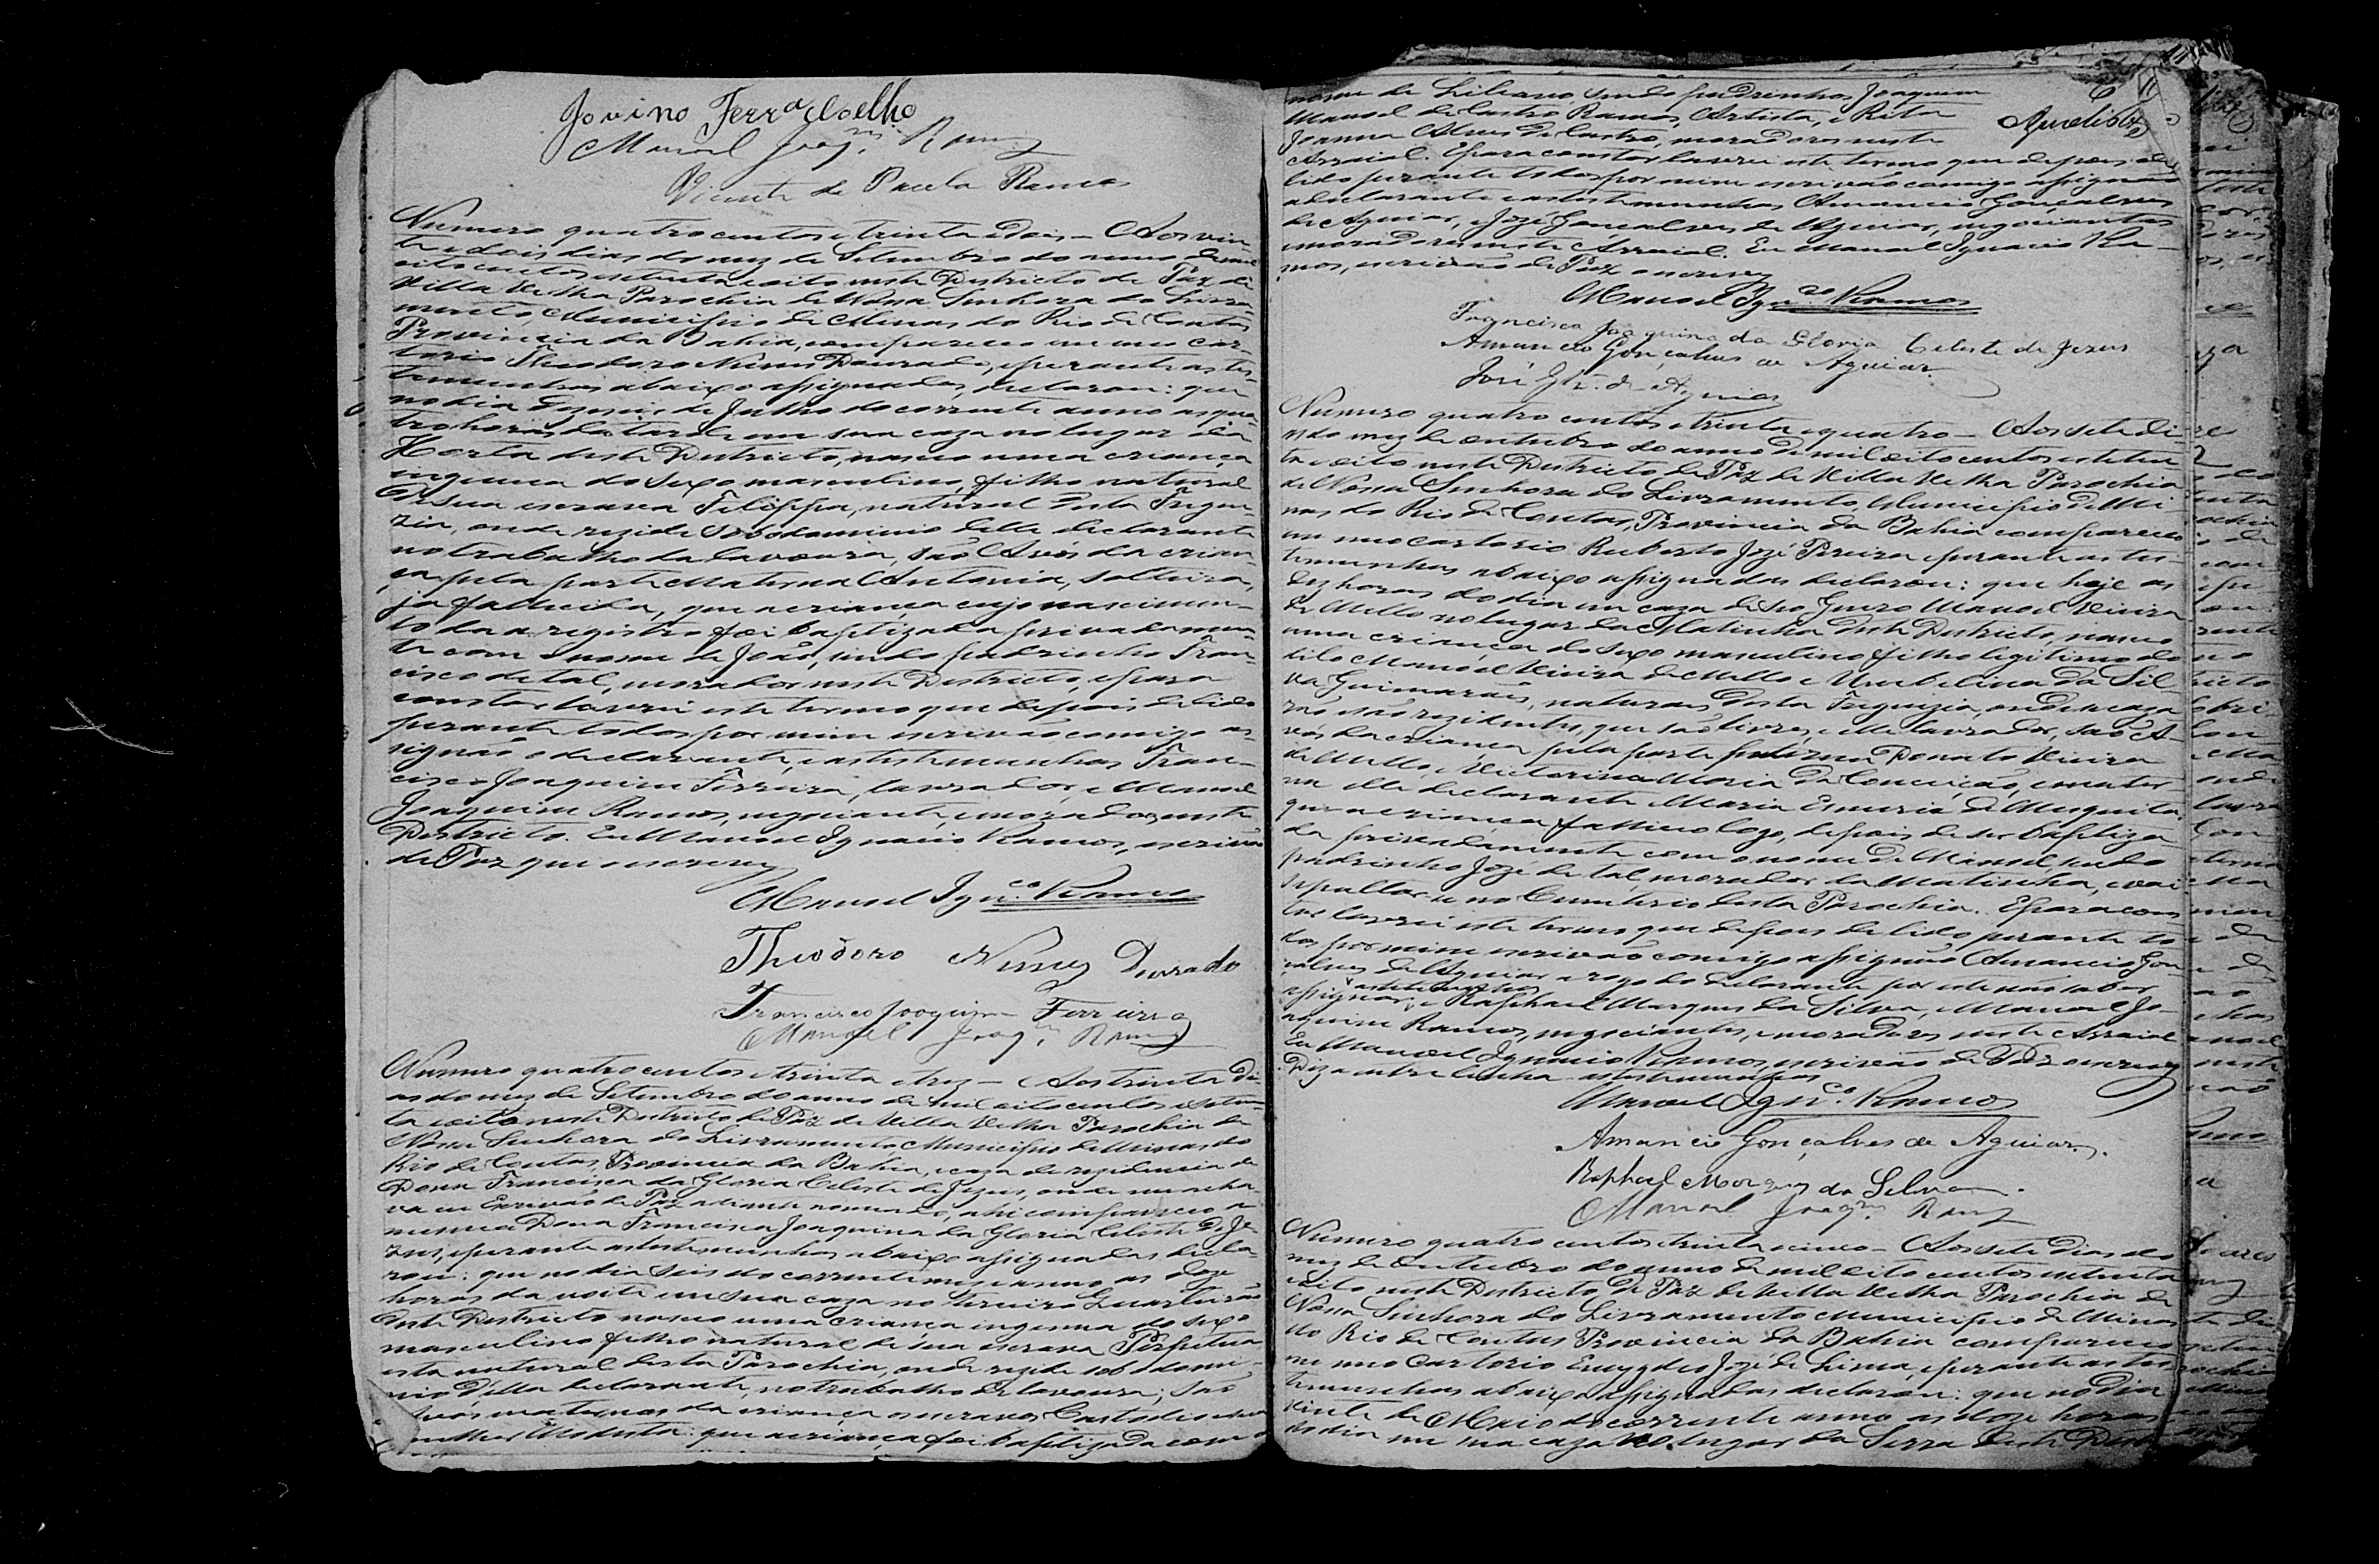 Jovino Ferrª Coelho
Manoel Joaqm Ramos
Vicente de Paula Ramos
Numero quatro centos e trinta e dois — Aos vin
te e dois dias do mez de Setembro do anno de mil
oito centos e setenta e oito neste Districto de Paz de
Villa Velha Parochia de Nossa Senhora do Livra-
mento, Municipio de Minas do Rio de Contas
Provincia da Bahia, compareceo em meo car-
torio Theodoro Nunes Dourado, e perante as tes-
temunhas abaixo assignadas, declarou: que
no dia dezeseis de Julho do corrente anno as qua-
tro horas da tarde em sua caza no lugar da
Horta deste Districto, nasceo uma criança
ingenua do sexo masculino, filho natural
de sua escrava Filippa, natural desta Fregue-
zia, onde rezide sob o dominio delle declarante
no trabalho da lavoura, são Avós da crian-
ça pela parte Materna Antonia, solteira,
ja fallecida, que a criança cujo nascimen-
to da a registro foi baptizada privadamen-
te com o nome de João, sendo padrinho Fran-
cisco de tal, morador neste Districto, e para
constar lavrei este termo que depois de lido
perante todos por mim escrivão comigo as-
signão o declarante, e as testemunhas Fran-
cisco Joaquim Ferreira, lavrador, e Manoel
Joaquim Ramos, negociante, e moradores neste
Districto. Eu Manoel Ignacio Ramos, escrivão
de Paz que o escrevy
Manoel Ignco. Ramos
Theodoro Nunes Durado
Francisco Joaquim Ferreira
Manoel Joaqm Ramos
Numero quatro centos e trinta e trez — Aos trinta di-
as do mez de Setembro do anno de mil oito centos e seten-
ta e oito neste Districto de Paz de Villa Velha Parochia de
Nossa Senhora do Livramento, Municipio de Minas do
Rio de Contas, Provincia da Bahia, e caza de rezidencia de
Dona Francisca da Gloria Celeste de Jezus, onde me acha-
va eu Escrivão de Paz adiante nomeado, ahi compareceo a
mesma Dona Francisca Joaquina da Gloria Celeste de Je-
zus, e perante as testemunhas abaixo assignadas decla-
rou: que no dia seis do corrente mez e anno as doze
horas da noite em sua caza no Terceiro Quarteirão
deste Districto nasceo uma criança ingenua do sexo
masculino filho natural de sua escrava Perpetua
esta natural desta Parochia, onde rezide sob domi-
nio d'ella declarante, no trabalho de lavoura; são
Avós maternos da criança os escravos Custodio e sua
mulher Modesta: que a criança foi baptizada com o
nome de Liberano sendo padrinhos Joaquim
Manoel de Castro Ramos, Artista, e Rita
Joanna Alves de Castro, moradores neste
Arraial. E para constar lavrei este termo que depois de
lido perante todos por mim escrivão comigo assignão
a declarante e as testemunhas Amancio Gonçalves
de Aguiar, e José Gonçalves de Aguiar, negociantes
e moradores neste Arraial. Eu Manoel Ignacio Ra-
mos, escrivão de Paz o escrevy
Manoel Ignco. Ramos
Francisca Joaquina da Gloria Celeste de Jezus
Amancio Gonçalves de Aguiar.
José Glz. de Aguiar
Numero quatro centos e trinta e quatro — Aos sete di-
as do mez de outubro do anno de mil oito centos e seten
ta e oito neste Districto de Paz de Villa Velha Parochia
de Nossa Senhora do Livramento, Municipio de Mi-
nas do Rio de Contas, Provincia da Bahia compareceo
em meo cartorio Ruberto Jozé Pereira e perante as tes-
temunhas abaixo assignadas declarou: que hoje as
dez horas do dia em caza de seo Genro Manoel Vieira
de Mello no lugar da Matinha deste Districto, nasceo
uma criança do sexo masculino filho legitimo do
dito Manoel Vieira de Mello e Umbelina da Sil-
va Guimarães, naturaes desta Freguezia, onde se caza-
rão e são rezidentes, que são livres, e elle lavrador, são A-
vós da criança pela parte paterna Donato Vieira
de Mello, e Victorina Maria da Conceição, e mater-
na elle declarante Maria Esmeria de Mesquita,
que a criança falleceo logo, depois de ser baptiza-
da privadamente com o nome de Manoel, sendo
padrinho Jozé de tal, morador da Matinha, e vai
sepultar-se no Cemiterio desta Parochia. E para cons
tar lavrei este termo que depois de lido perante to
dos por mim escrivão comigo assignão Amancio Gon
çalves de Aguiar a rogo do declarante por este não saber
as testemunhas
assignar, e Raphael Marques da Silva, e Manoel Jo-
aquim Ramos, negociantes, e moradores neste Arraial
Eu Manoel Ignacio Ramos escrivão de Paz o escrevy
Diz a entre linha - as testemunhas
Manoel Ignco. Ramos
Amancio Gonçalves de Aguiar.
Raphael Marques da Silva.
Manoel Joaqm Ramos
Numero quatro centos e trinta e cinco — Aos sete dias do
mez de outubro do anno de mil oito centos e setenta
e oito neste Districto de Paz de Villa Velha Parochia de
Nossa Senhora do Livramento Municipio de Minas
do Rio de Contas Provincia da Bahia compareceo
em meo Cartorio Emygdio Jozé de Lima, e perante as tes
temunhas abaixo assignadas declarou: que no dia
vinte de Maio do corrente anno as doze horas
do dia em sua caza no lugar da Serra deste Dist